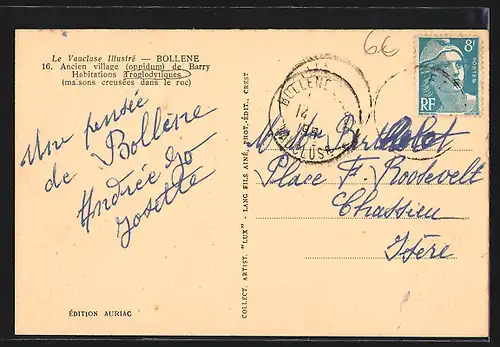 Le Vaucluse Illustré — BOLLENE
16. Ancien village (oppidum) de Barry
Habitations Troglodytiques
(maisons creusées dans le roc)
6€
8F
POSTES
RF
BOLLENE
14
VAUCLUSE
Une pensée
de Bollène
Andrée
Josette
Place F. Roosevelt
Chassieu
Isère
COLLECT. ARTIST. "LUX" - LANG FILS AINÉ, PHOT.-ÉDIT., CREST
ÉDITION AURIAC